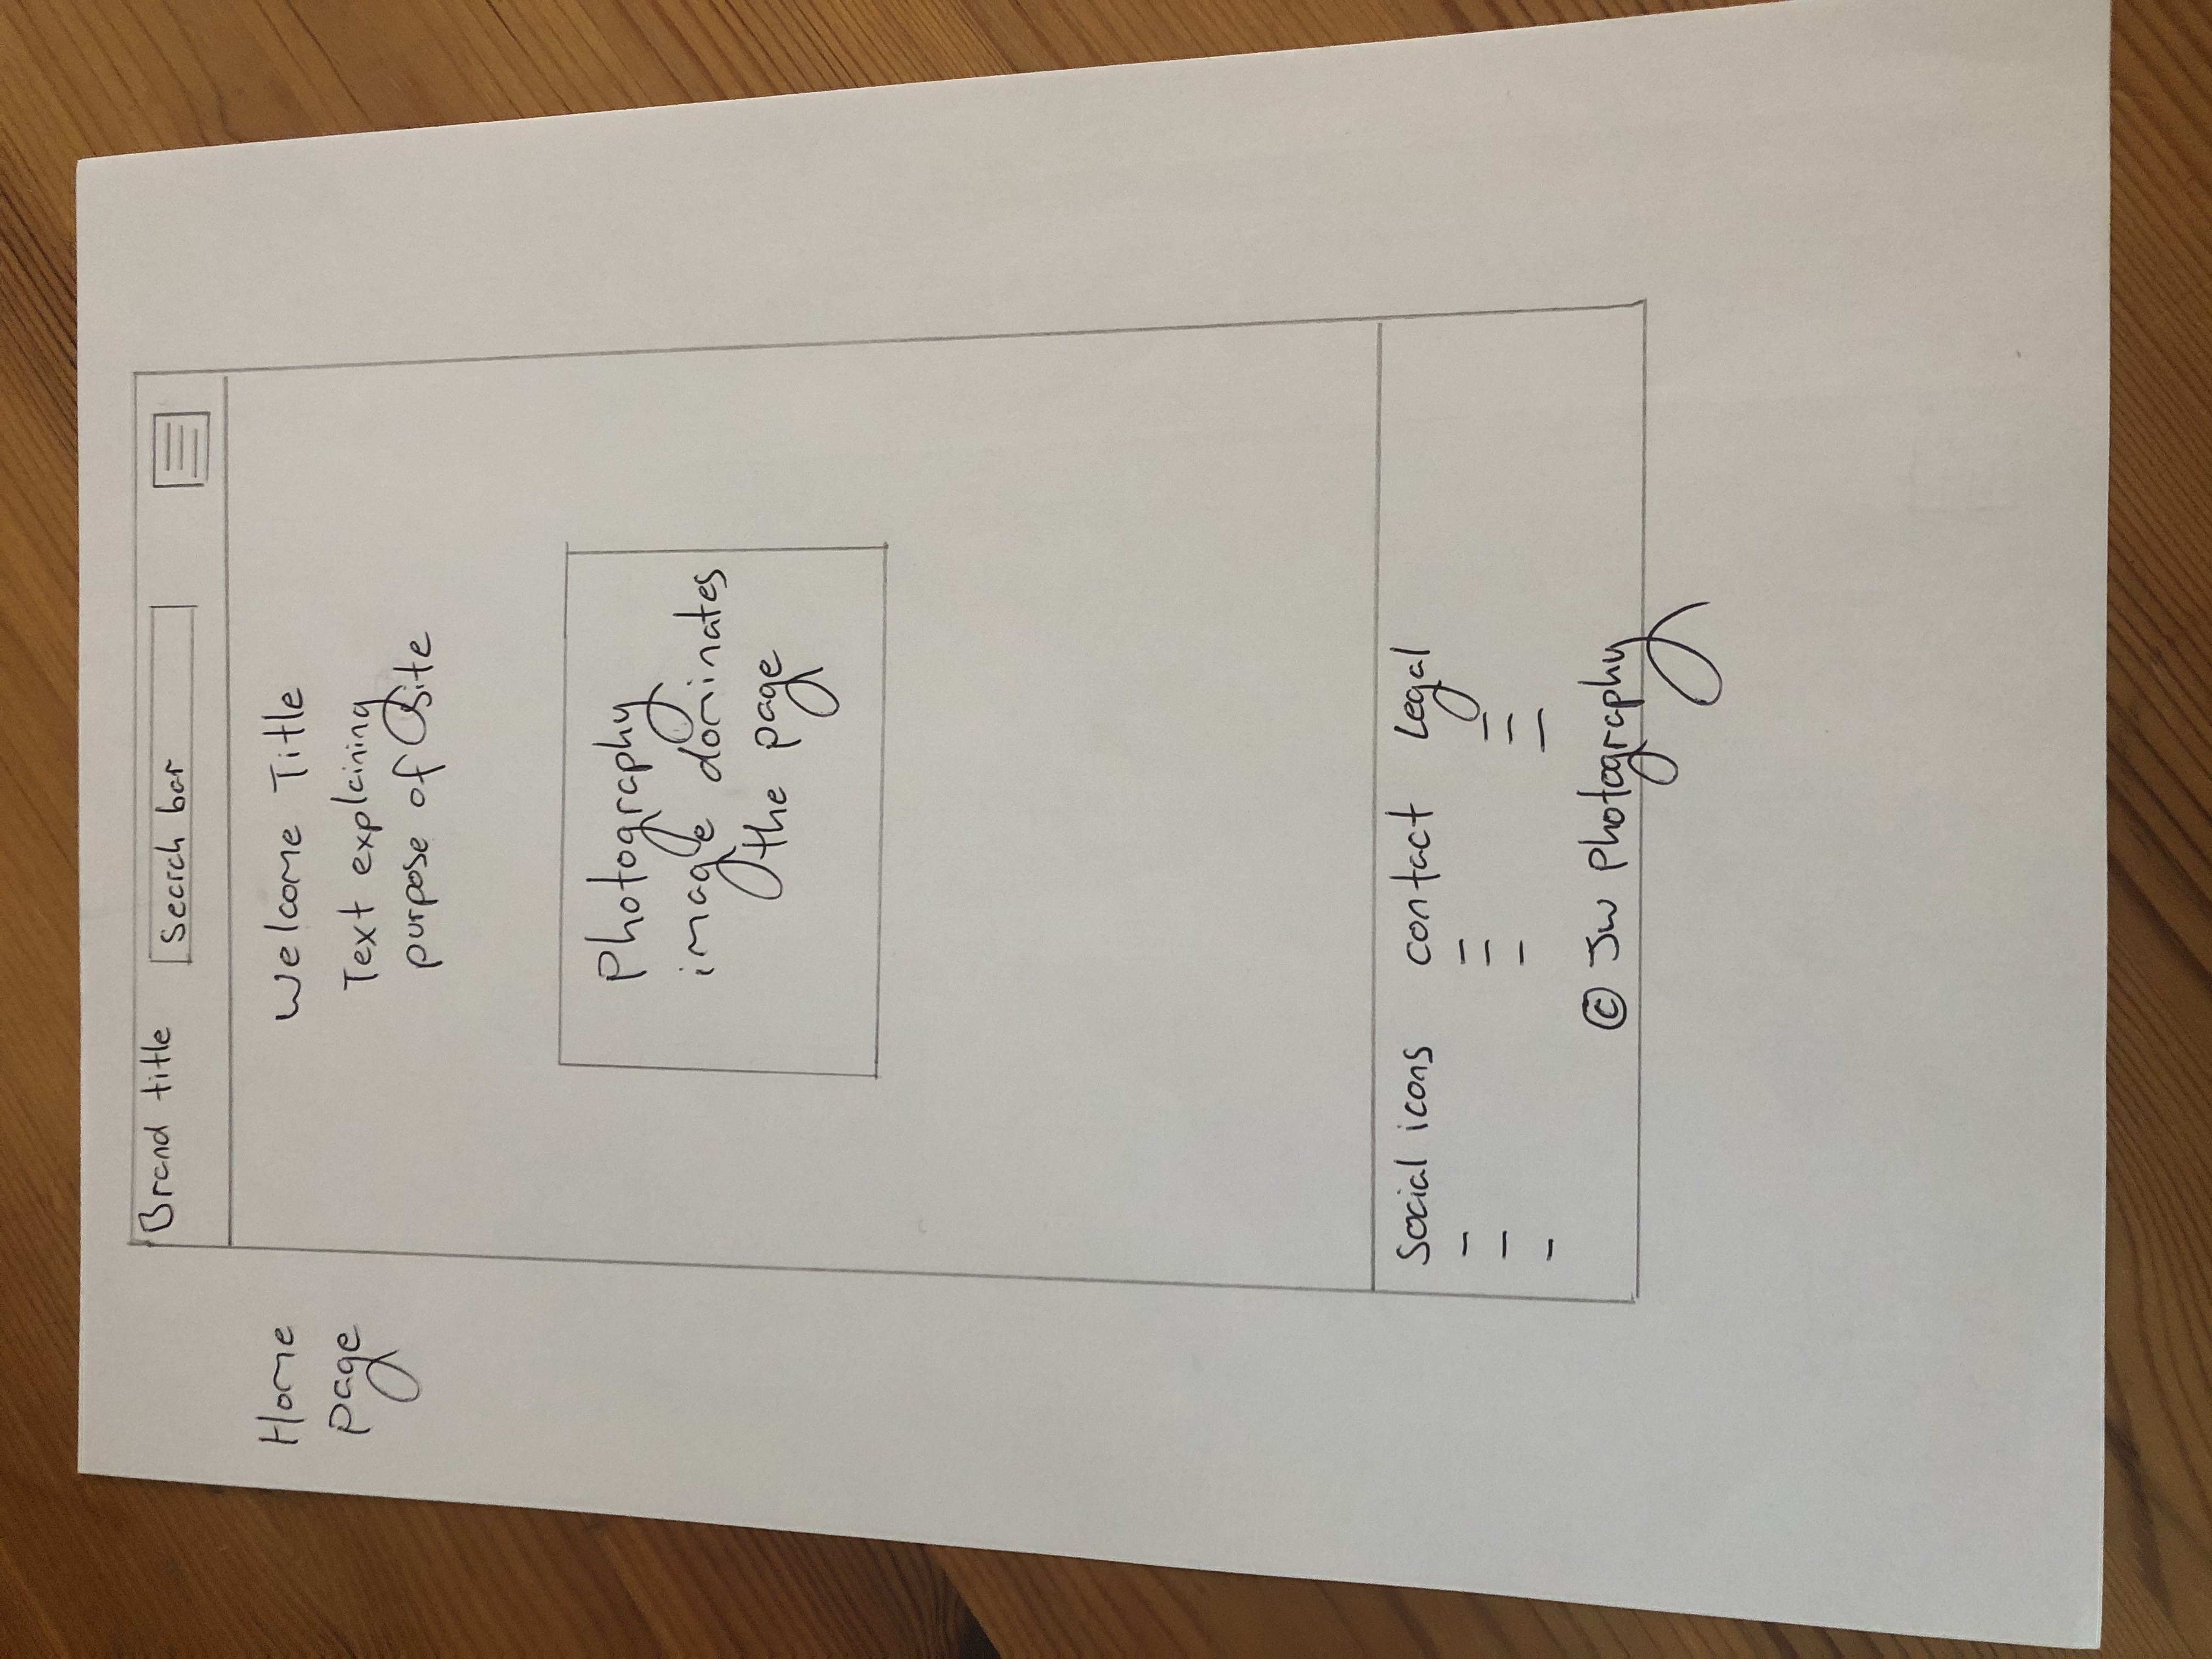 Brand title
Search bar
Home
page
Welcome Title
Text explaining
purpose of site
Photography
image dominates
the page
Social icons
contact
Legal
© JW Photography